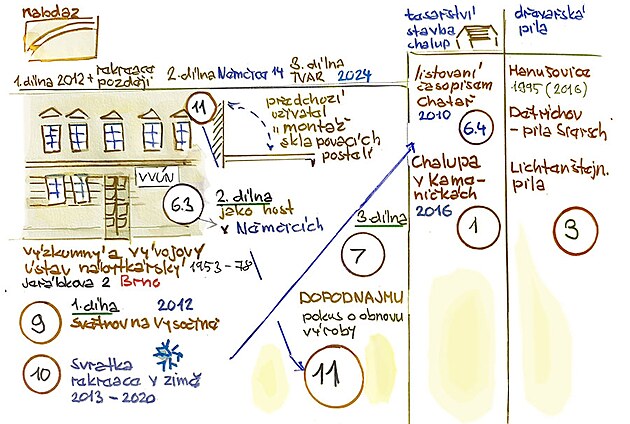 nabdaz
1. dílna 2012 + rekreace
později
2. dílna Němčice 14
3. dílna
TVAR 2024
11
předchozí
uživatel
montáž
sklápovacích
postelí
VVÚN
6.3
2. dílna
jako host
v Němčicích
výzkumný a vývojový
ústav nábytkářský 1953-78
Jeřábkova 2 Brno
1. dílna 2012
9
Svratka
rekreace v zimě
2013 - 2020
10
3. dílna
7
DOPODNAJMU
pokus o obnovu
výroby
11
tesařství
stavba
chalup
listování
časopisem
Chatař
2010
6.4
Chalupa
v Kame-
ničkách
2016
1
dřevařská
pila
Hanušovice
1995 (2016)
Dětřichov
- pila Starsch
Lichtenštejn.
pila
3